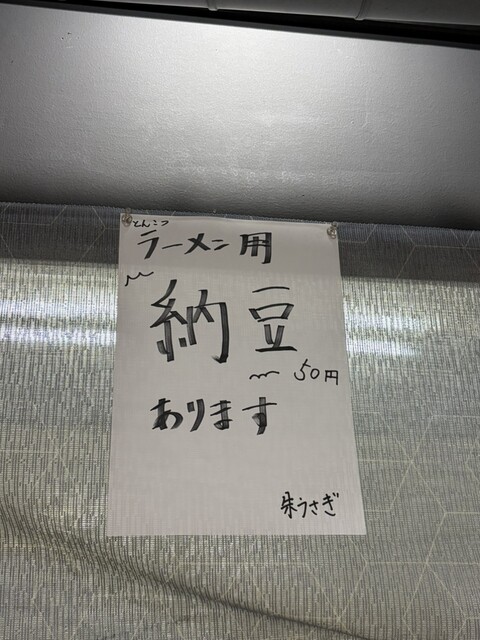 とんこつ
ラーメン用
納豆
50円
あります
朱うさぎ